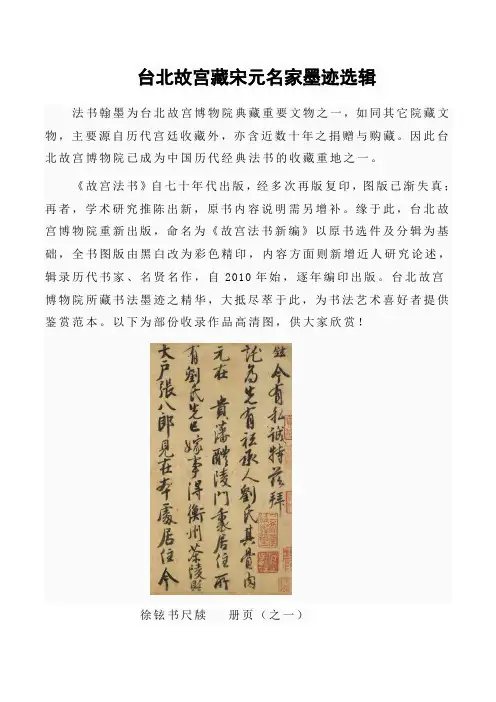 台北故宫藏宋元名家墨迹选辑
法书翰墨为台北故宫博物院典藏重要文物之一，如同其它院藏文
物，主要源自历代宫廷收藏外，亦含近数十年之捐赠与购藏。因此台
北故宫博物院已成为中国历代经典法书的收藏重地之一。
《故宫法书》自七十年代出版，经多次再版复印，图版已渐失真；
再者，学术研究推陈出新，原书内容说明需另增补。缘于此，台北故
宫博物院重新出版，命名为《故宫法书新编》以原书选件及分辑为基
础，全书图版由黑白改为彩色精印，内容方面则新增近人研究论述，
辑录历代书家、名贤名作，自2010年始，逐年编印出版。台北故宫
博物院所藏书法墨迹之精华，大抵尽萃于此，为书法艺术喜好者提供
鉴赏范本。以下为部份收录作品高清图，供大家欣赏！
鉉今有私誠特茲拜
託為先有祗承人劉氏其骨肉
元在 貴藩醴陵門裏居住所
有劉氏先已嫁事得衡州茶陵縣
大戶張八郎見在本處居住今
徐铉书尺牍 册页（之一）